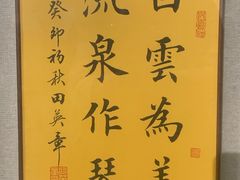 白雲為蓋
流泉作琴
癸卯初秋田英章